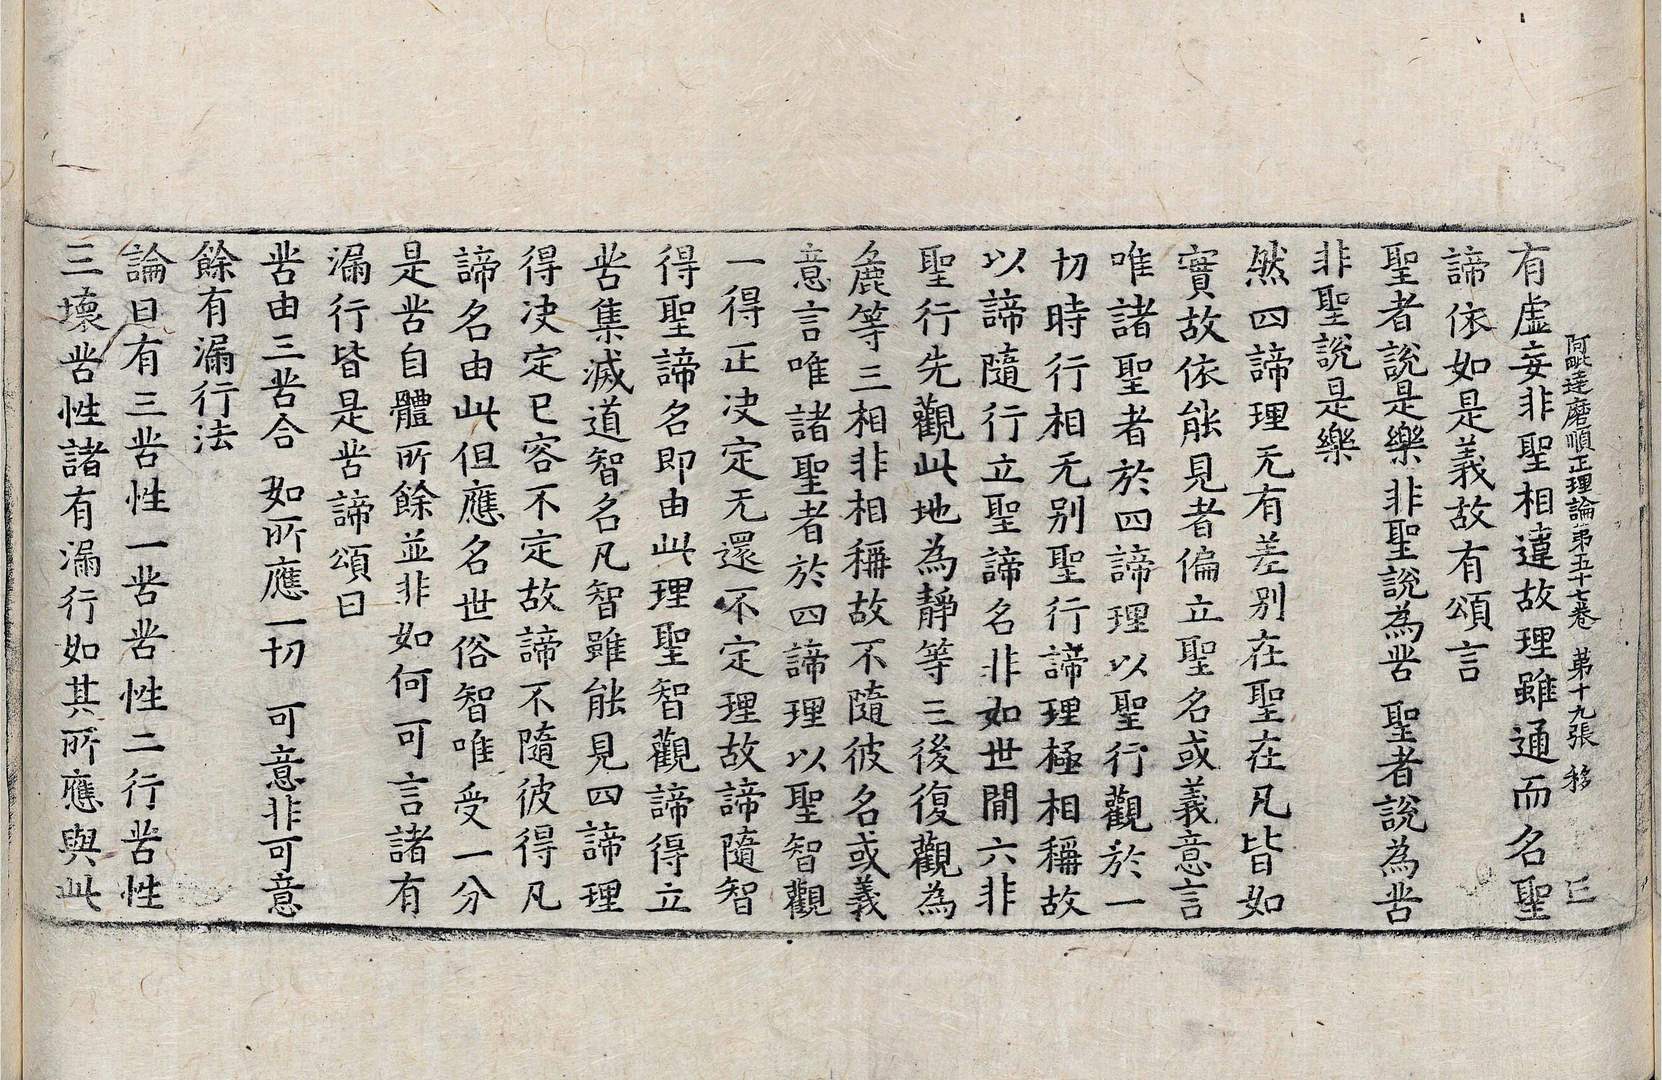 阿毗達磨順正理論第五十七卷 第十九張 移
有虛妄非聖相違故理雖通而名聖
諦依如是義故有頌言
聖者說是樂非聖說為苦 聖者說為苦
非聖說是樂
然四諦理无有差別在聖在凡皆如
實故依能見者偏立聖名或義意言
唯諸聖者於四諦理以聖行觀於一
切時行相无別聖行諦理極相稱故
以諦隨行立聖諦名非如世間六非
聖行先觀此地為靜等三後復觀為
麁等三相非相稱故不隨彼名或義
意言唯諸聖者於四諦理以聖智觀
一得正决定无還不定理故諦隨智
得聖諦名即由此理聖智觀諦得立
苦集滅道智名凡智雖能見四諦理
得决定已容不定故諦不隨彼得凡
諦名由此但應名世俗智唯受一分
是苦自體所餘並非如何可言諸有
漏行皆是苦諦頌曰
苦由三苦合 如所應一切 可意非可意
餘有漏行法
論曰有三苦性一苦苦性二行苦性
三壞苦性諸有漏行如其所應與此